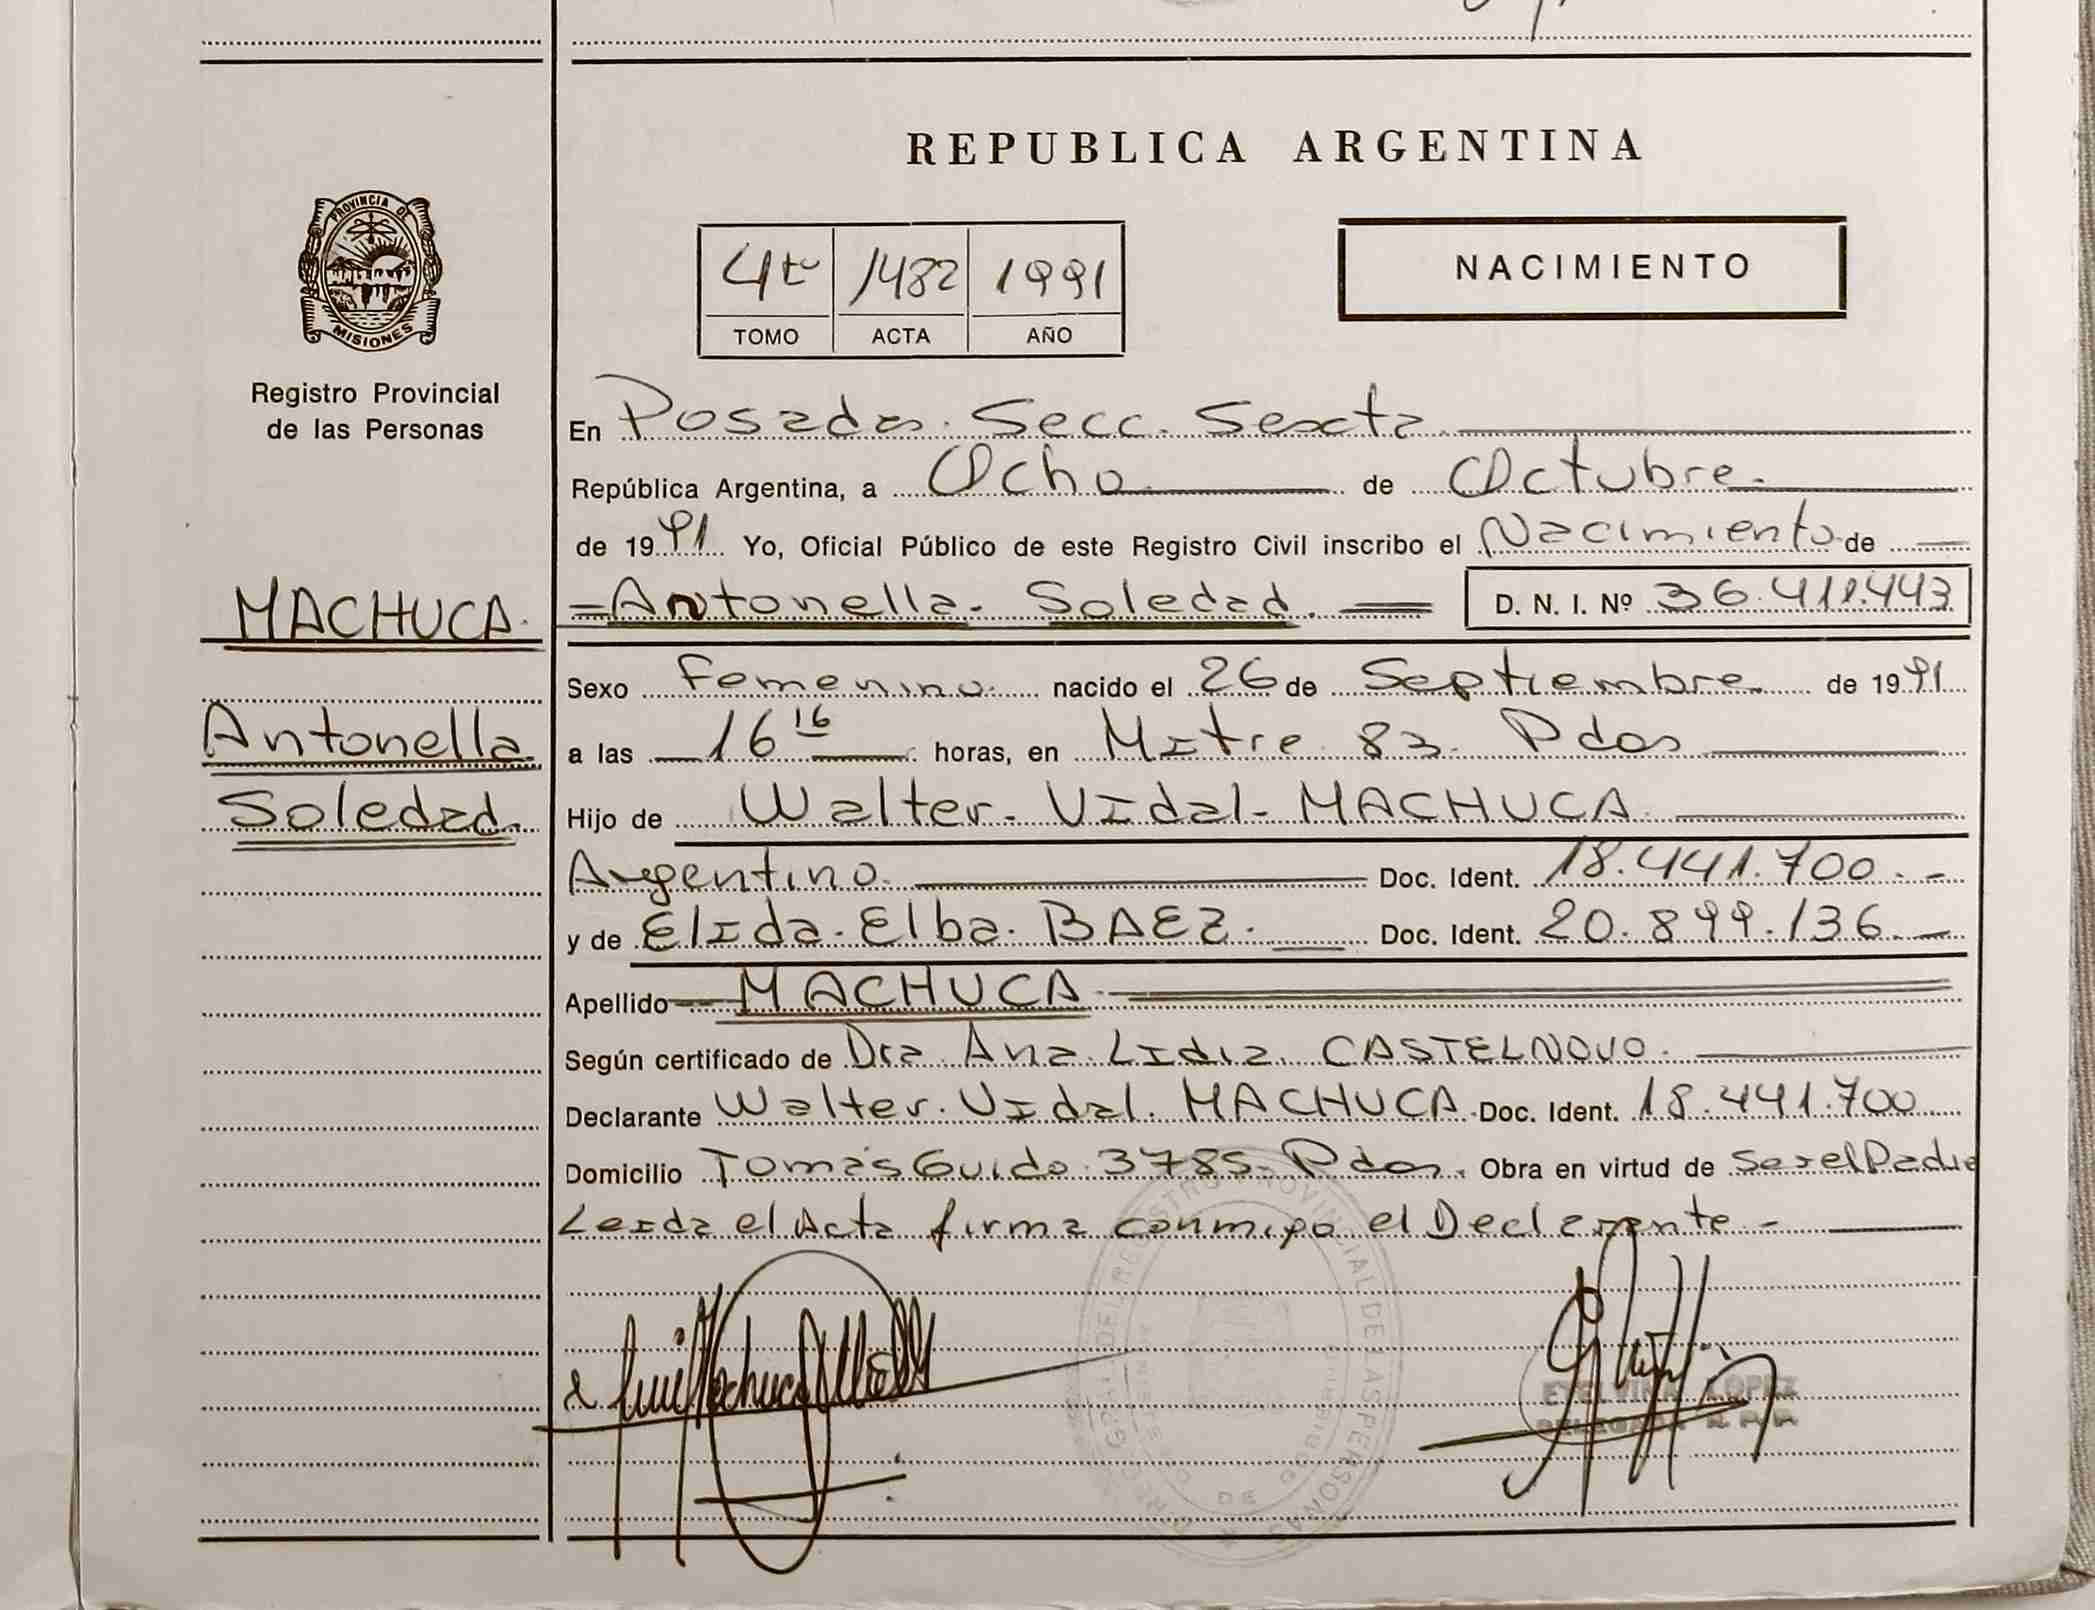 REPUBLICA ARGENTINA
PROVINCIA DE
MISIONES
Registro Provincial
de las Personas
4to 1482 1991
TOMO ACTA AÑO
NACIMIENTO
En Posadas. Secc. Sexta
República Argentina, a Ocho de Octubre.
de 1991 Yo, Oficial Público de este Registro Civil inscribo el Nacimiento de
MACHUCA.
Antonella
Soledad.
=Antonella. Soledad. = D. N. I. Nº 36.411.443
Sexo Femenino nacido el 26 de Septiembre de 1991
a las 16 16 horas, en Mitre 83. Pdas
Hijo de Walter. Vidal. MACHUCA
Argentino. Doc. Ident. 18.441.700.-
y de Elida. Elba. BAEZ. Doc. Ident. 20.899.136.-
Apellido MACHUCA
Según certificado de Dra. Ana. Lidia. CASTELNOVO.
Declarante Walter. Vidal. MACHUCA. Doc. Ident. 18.441.700
Domicilio Tomás Guido. 3785. Pdas. Obra en virtud de Ser el Padre
Leida el Acta firma conmigo el Declarante -
REGISTRO PROVINCIAL DE LAS PERSONAS
LOPEZ
DELEGADA R. P. P.